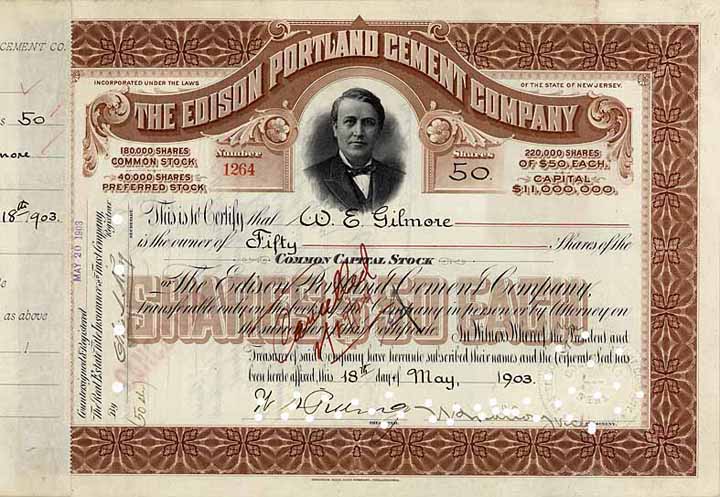 CEMENT CO.
50
18th 903.
as above
THE EDISON PORTLAND CEMENT COMPANY
INCORPORATED UNDER THE LAWS
OF THE STATE OF NEW JERSEY.
180,000 SHARES
COMMON STOCK
40,000 SHARES
PREFERRED STOCK
Number
1264
Shares
50
220,000 SHARES
OF $50. EACH.
CAPITAL
$11,000,000.
This is to Certify that W. E. Gilmore
is the owner of Fifty Shares of the
COMMON CAPITAL STOCK
SHARES $50 EACH
of The Edison Portland Cement Company,
transferable only on the Company in person or by Attorney on
the surrender of this Certificate. In Witness Whereof the President and
Treasurer of said Company have hereunto subscribed their names and the Corporate Seal has
been hereto affixed, this 18th day of May, 1903.
Cancelled
Countersigned & Registered MAY 20 1903
The Real Estate Title Insurance & Trust Company,
Registrar
By